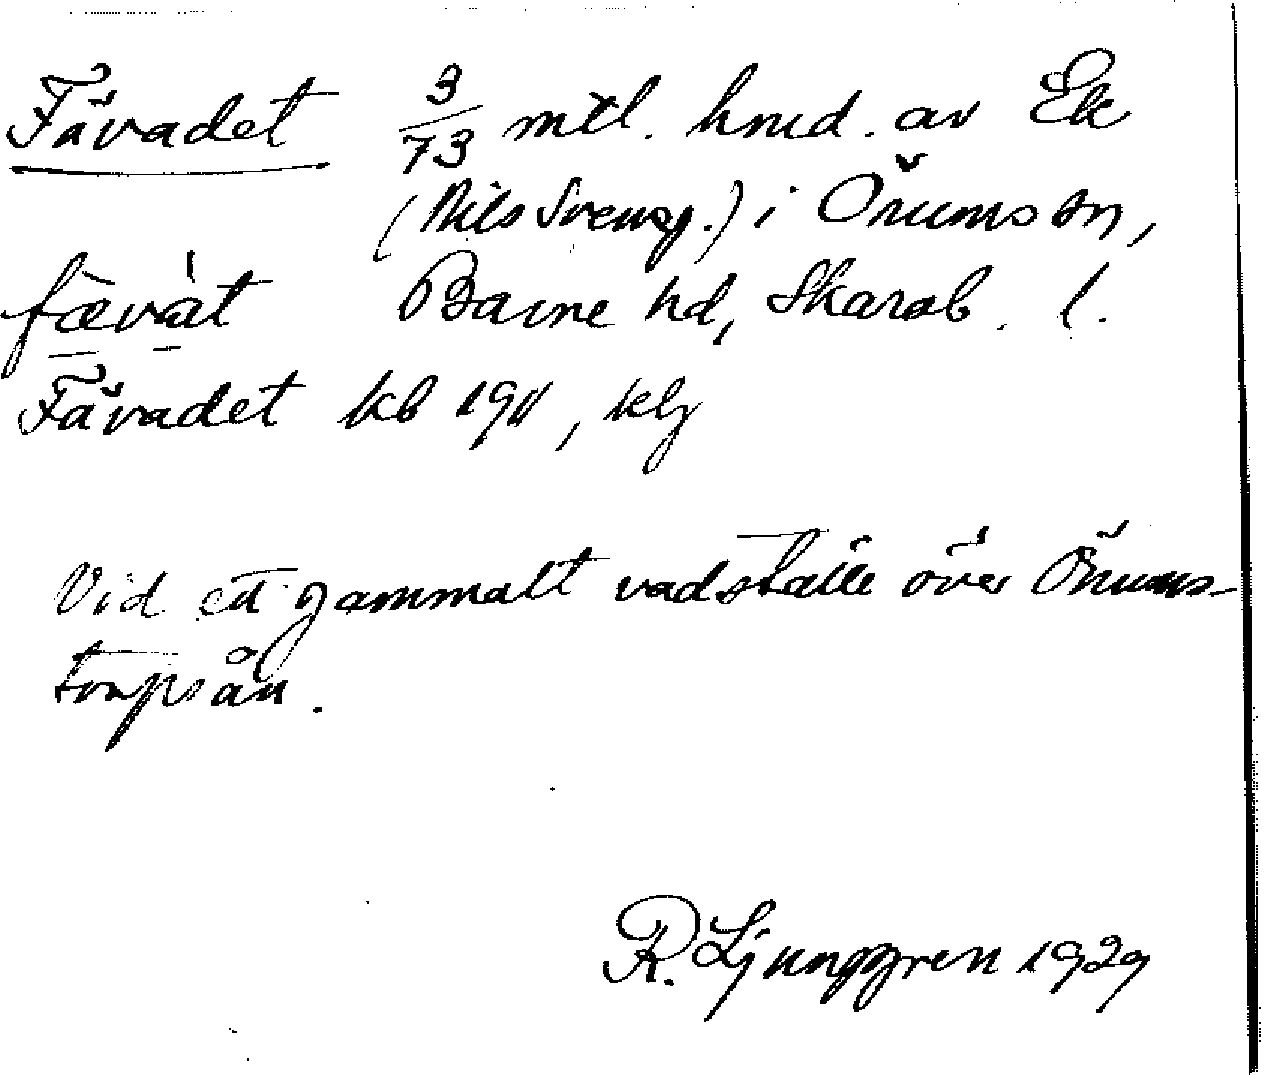 Fävadet 3/73 mtl. hmd. av Ek
(Nils Svensg.) i Önums sn,
fævàt Barne hd, Skarab. l.
Fävadet kb 1911, klg
Vid ett gammalt vadställe över Önums-
torpsån.
R. Ljunggren 1929